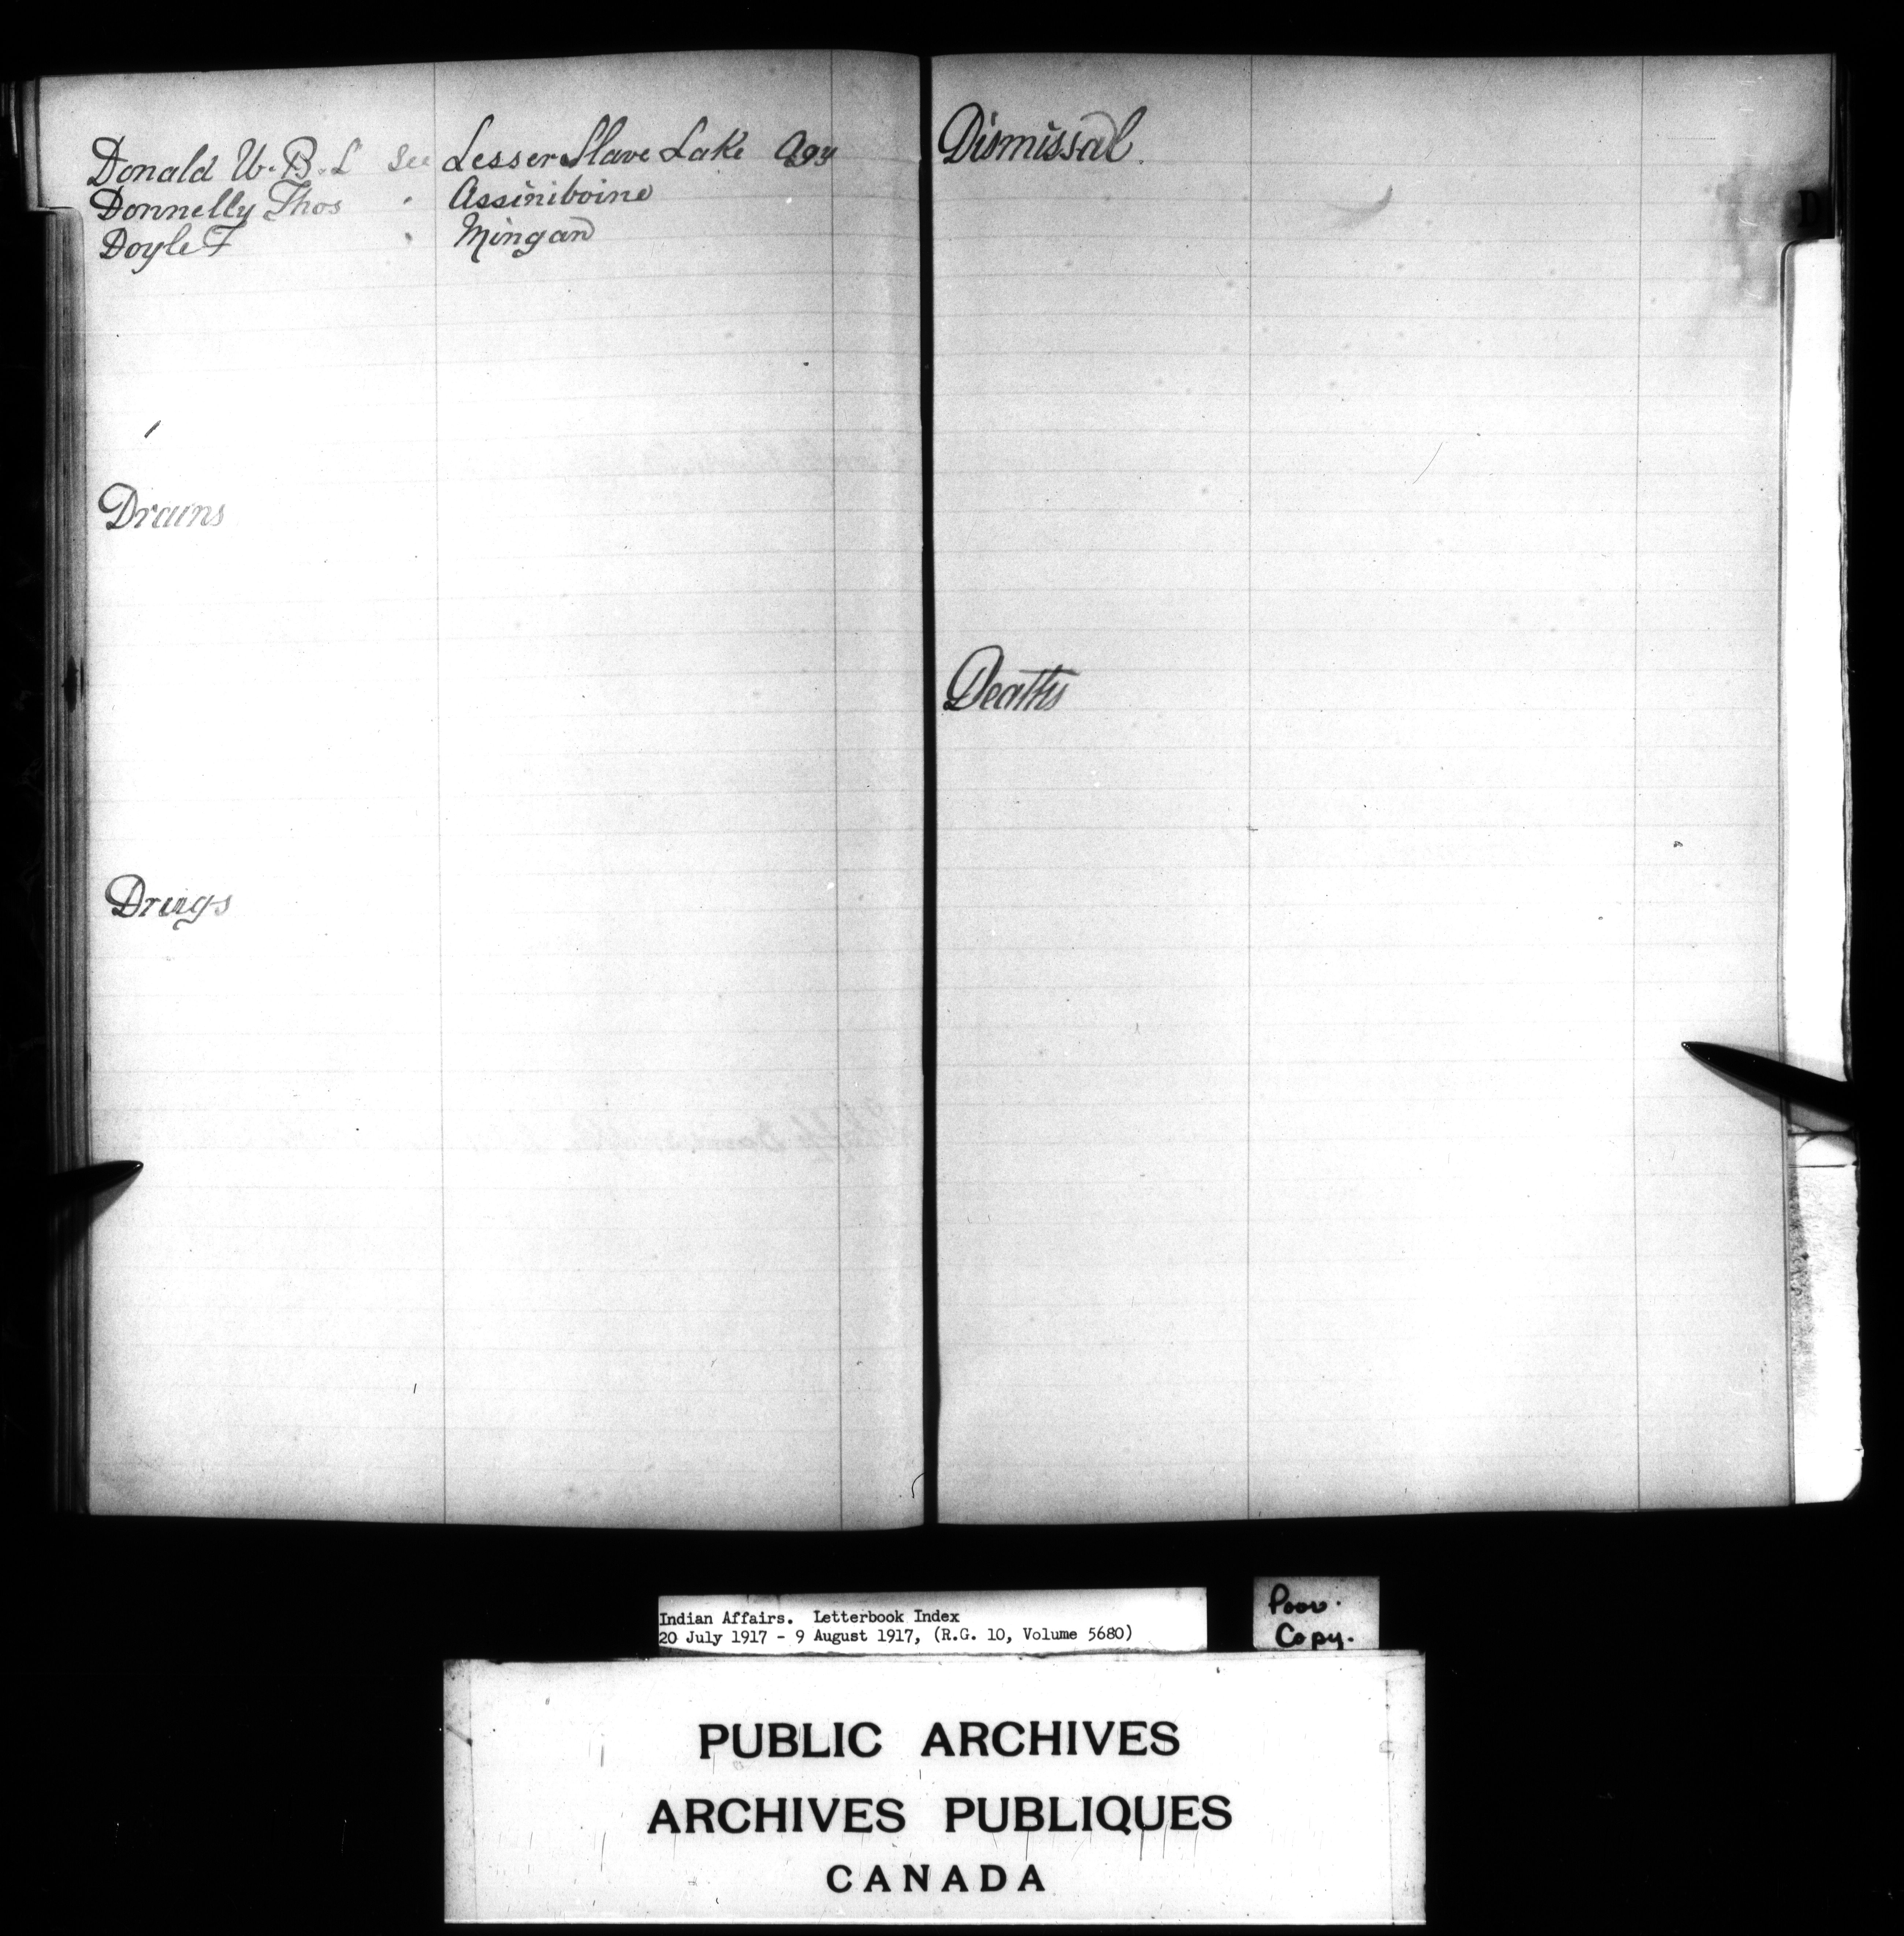 Donald W. B. L See Lesser Slave Lake Agy
Donnelly Thos " Assiniboine
Doyle F " Mingan
Drains
Drugs
Dismissal.
Deaths
D
Indian Affairs. Letterbook Index
20 July 1917 - 9 August 1917, (R.G. 10, Volume 5680)
Poor.
Copy.
PUBLIC ARCHIVES
ARCHIVES PUBLIQUES
CANADA